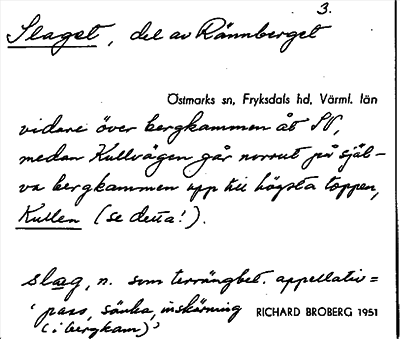 3.
Slaget, del av Rännberget
Östmarks sn, Fryksdals hd, Värml. län
vidare över bergkammen åt SV,
medan Kullvägen går norrut på själ-
va bergkammen upp till högsta toppen,
Kullen (se detta!).
slæg, n. som terrängbet. appellativ =
'pass, sänka, inskärning
(i bergkam)'
RICHARD BROBERG 1951